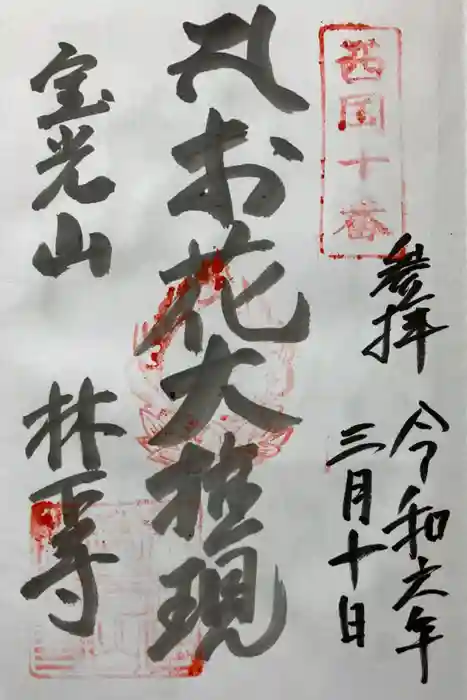 西国十番
参拝
令和六年
三月十日
お花大権現
宝光山
林下寺